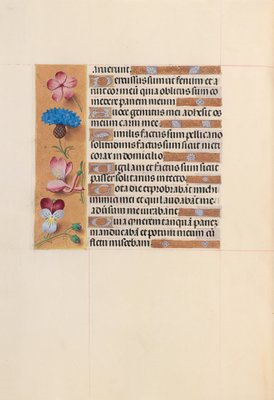 aruerunt.
Percussus sum ut fenum et a
ruit cor meū quia oblitus sum co
medere panem meum
A voce gemitus mei adhesit os
meum carni mee.
Similis factus sum pellicano
solitudinis factus sum sicut nicti
corax in domicilio
Vigilaui et factus sum sicut
passer solitarius in tecto.
Tota die exprobrabāt michi
inimici mei et qui laudabāt me ad
uersum me iurabant
Quia cinerem tanquā panez
manducabā et potum meum cū
fletu miscebam